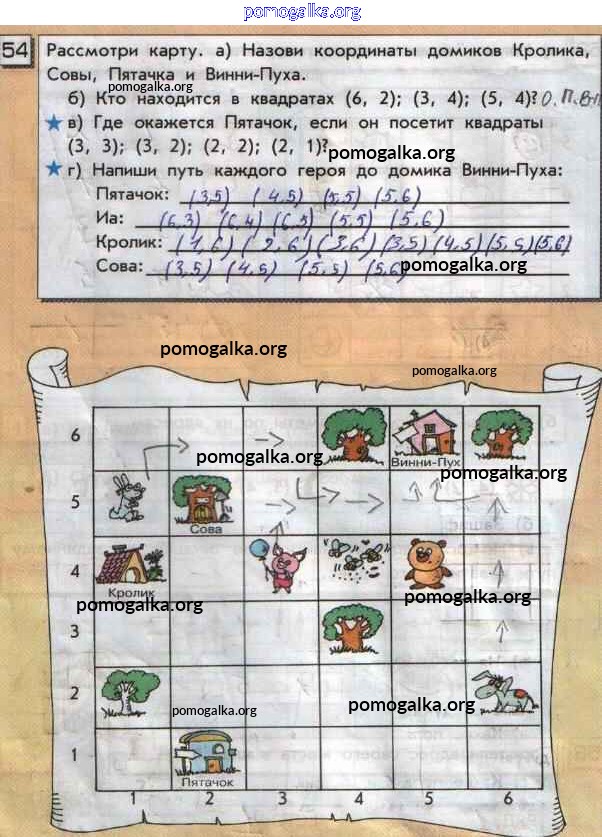 pomogalka.org
54 Рассмотри карту. а) Назови координаты домиков Кролика,
Совы, Пятачка и Винни-Пуха.
pomogalka.org
б) Кто находится в квадратах (6, 2); (3, 4); (5, 4)? О. П. В-П
в) Где окажется Пятачок, если он посетит квадраты
(3, 3); (3, 2); (2, 2); (2, 1)?
pomogalka.org
г) Напиши путь каждого героя до домика Винни-Пуха:
Пятачок: (3,5) (4,5) (5,5) (5,6)
Иа: (6,3) (6,4) (6,5) (5,5) (5,6)
Кролик: (1,6) (2,6) (3,6) (3,5) (4,5) (5,5) (5,6)
Сова: (3,5) (4,5) (5,5) (5,6)
pomogalka.org
pomogalka.org
pomogalka.org
6
Винни-Пух
pomogalka.org
pomogalka.org
5
Сова
4
Кролик
pomogalka.org
pomogalka.org
3
2
pomogalka.org
pomogalka.org
1
Пятачок
1 2 3 4 5 6